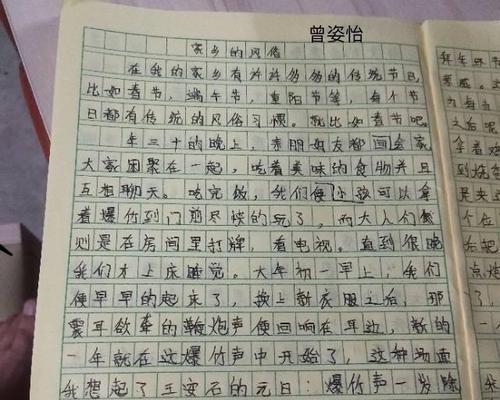 曾姿怡
家乡的风俗
在我的家乡有许许多多的传统节日,
比如春节,端午节,重阳节等,每个节
日都有传统的风俗习惯。就比如春节吧。
年三十的晚上,亲朋好友都回会家,
大家团聚在一起,吃着美味的食物并且
互相聊天。吃完饭,我们便小孩可以拿
着爆竹到门前尽快的玩了,而大人们然
则是在房间里打牌,看电视,直到很晚
我们才上床睡觉。大年初一早上,我们
便早早的起床了,换上新衣服之后,那
震耳欲聋的鞭炮声便回响在耳边,新的
一年就在这爆竹声中开始了,这种场面
我想起了王安石的元日:爆竹声一岁除
拜年